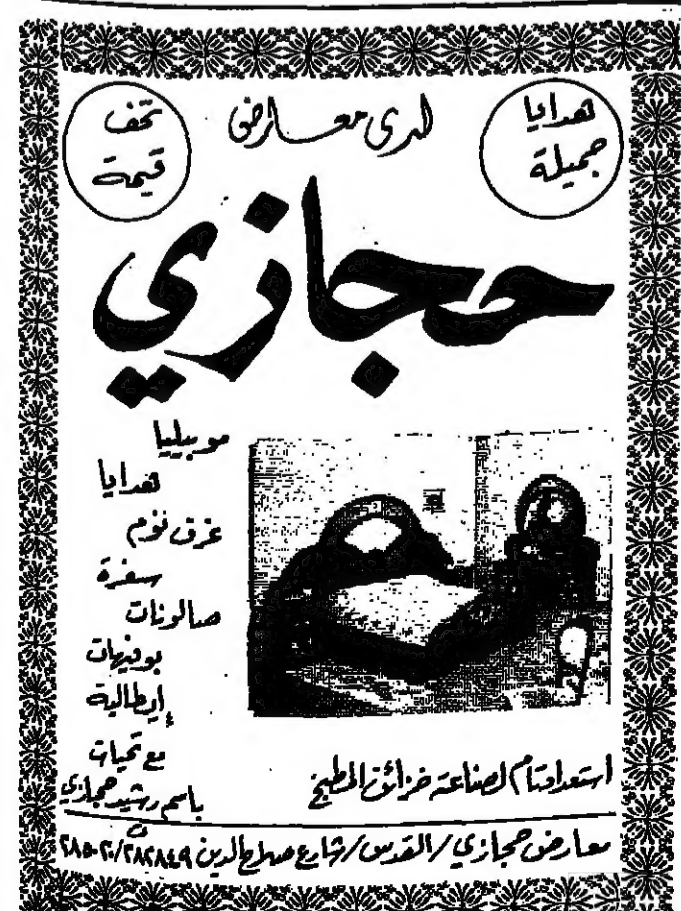 هدايا
جميلة
لدى معارض
تحف
قيمة
حجازي
موبيليا
هدايا
غرف نوم
سفرة
صالونات
بوفيهات
إيطالية
مع تحيات
باسم رشيد حجازي
استعداد تام لصناعة خزائن المطبخ
معارض حجازي / القدس / شارع صلاح الدين ت ٢٨٢٨٤٩ / ٢٨٥٠٢٠